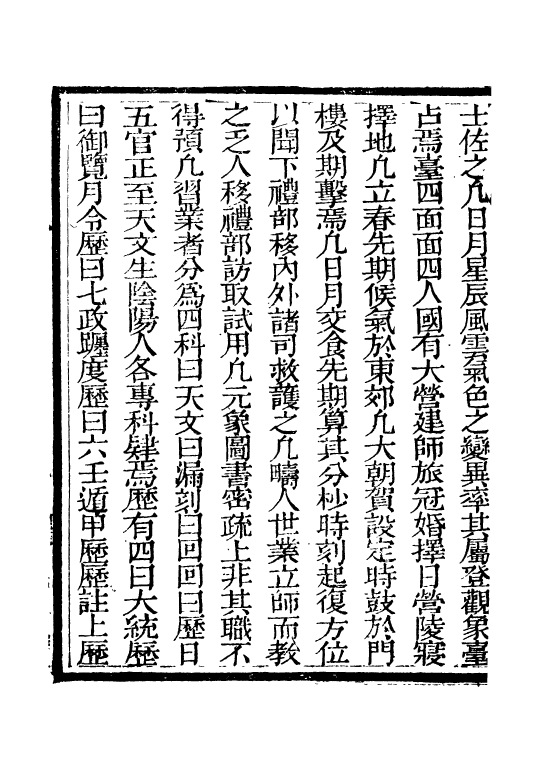 士佐之凢日月星辰風雲氣色之變異率其屬登觀象臺
占焉臺四面面四人國有大營建師旅冠婚擇日營陵寢
擇地凢立春先期候氣於東郊凢大朝賀設定時鼓於門
樓及期擊焉凢日月交食先期算其分秒時刻起復方位
以聞下禮部移內外諸司救護之凢疇人世業立師而教
之乏人移禮部訪取試用凢元象圖書密疏上非其職不
得預凢習業者分爲四科曰天文曰漏刻曰回回曰歷曰
五官正至天文生陰陽人各專科肄焉歷有四曰大統歷
曰御覽月令歷曰七政躔度歷曰六壬遁甲歷歷註上歷